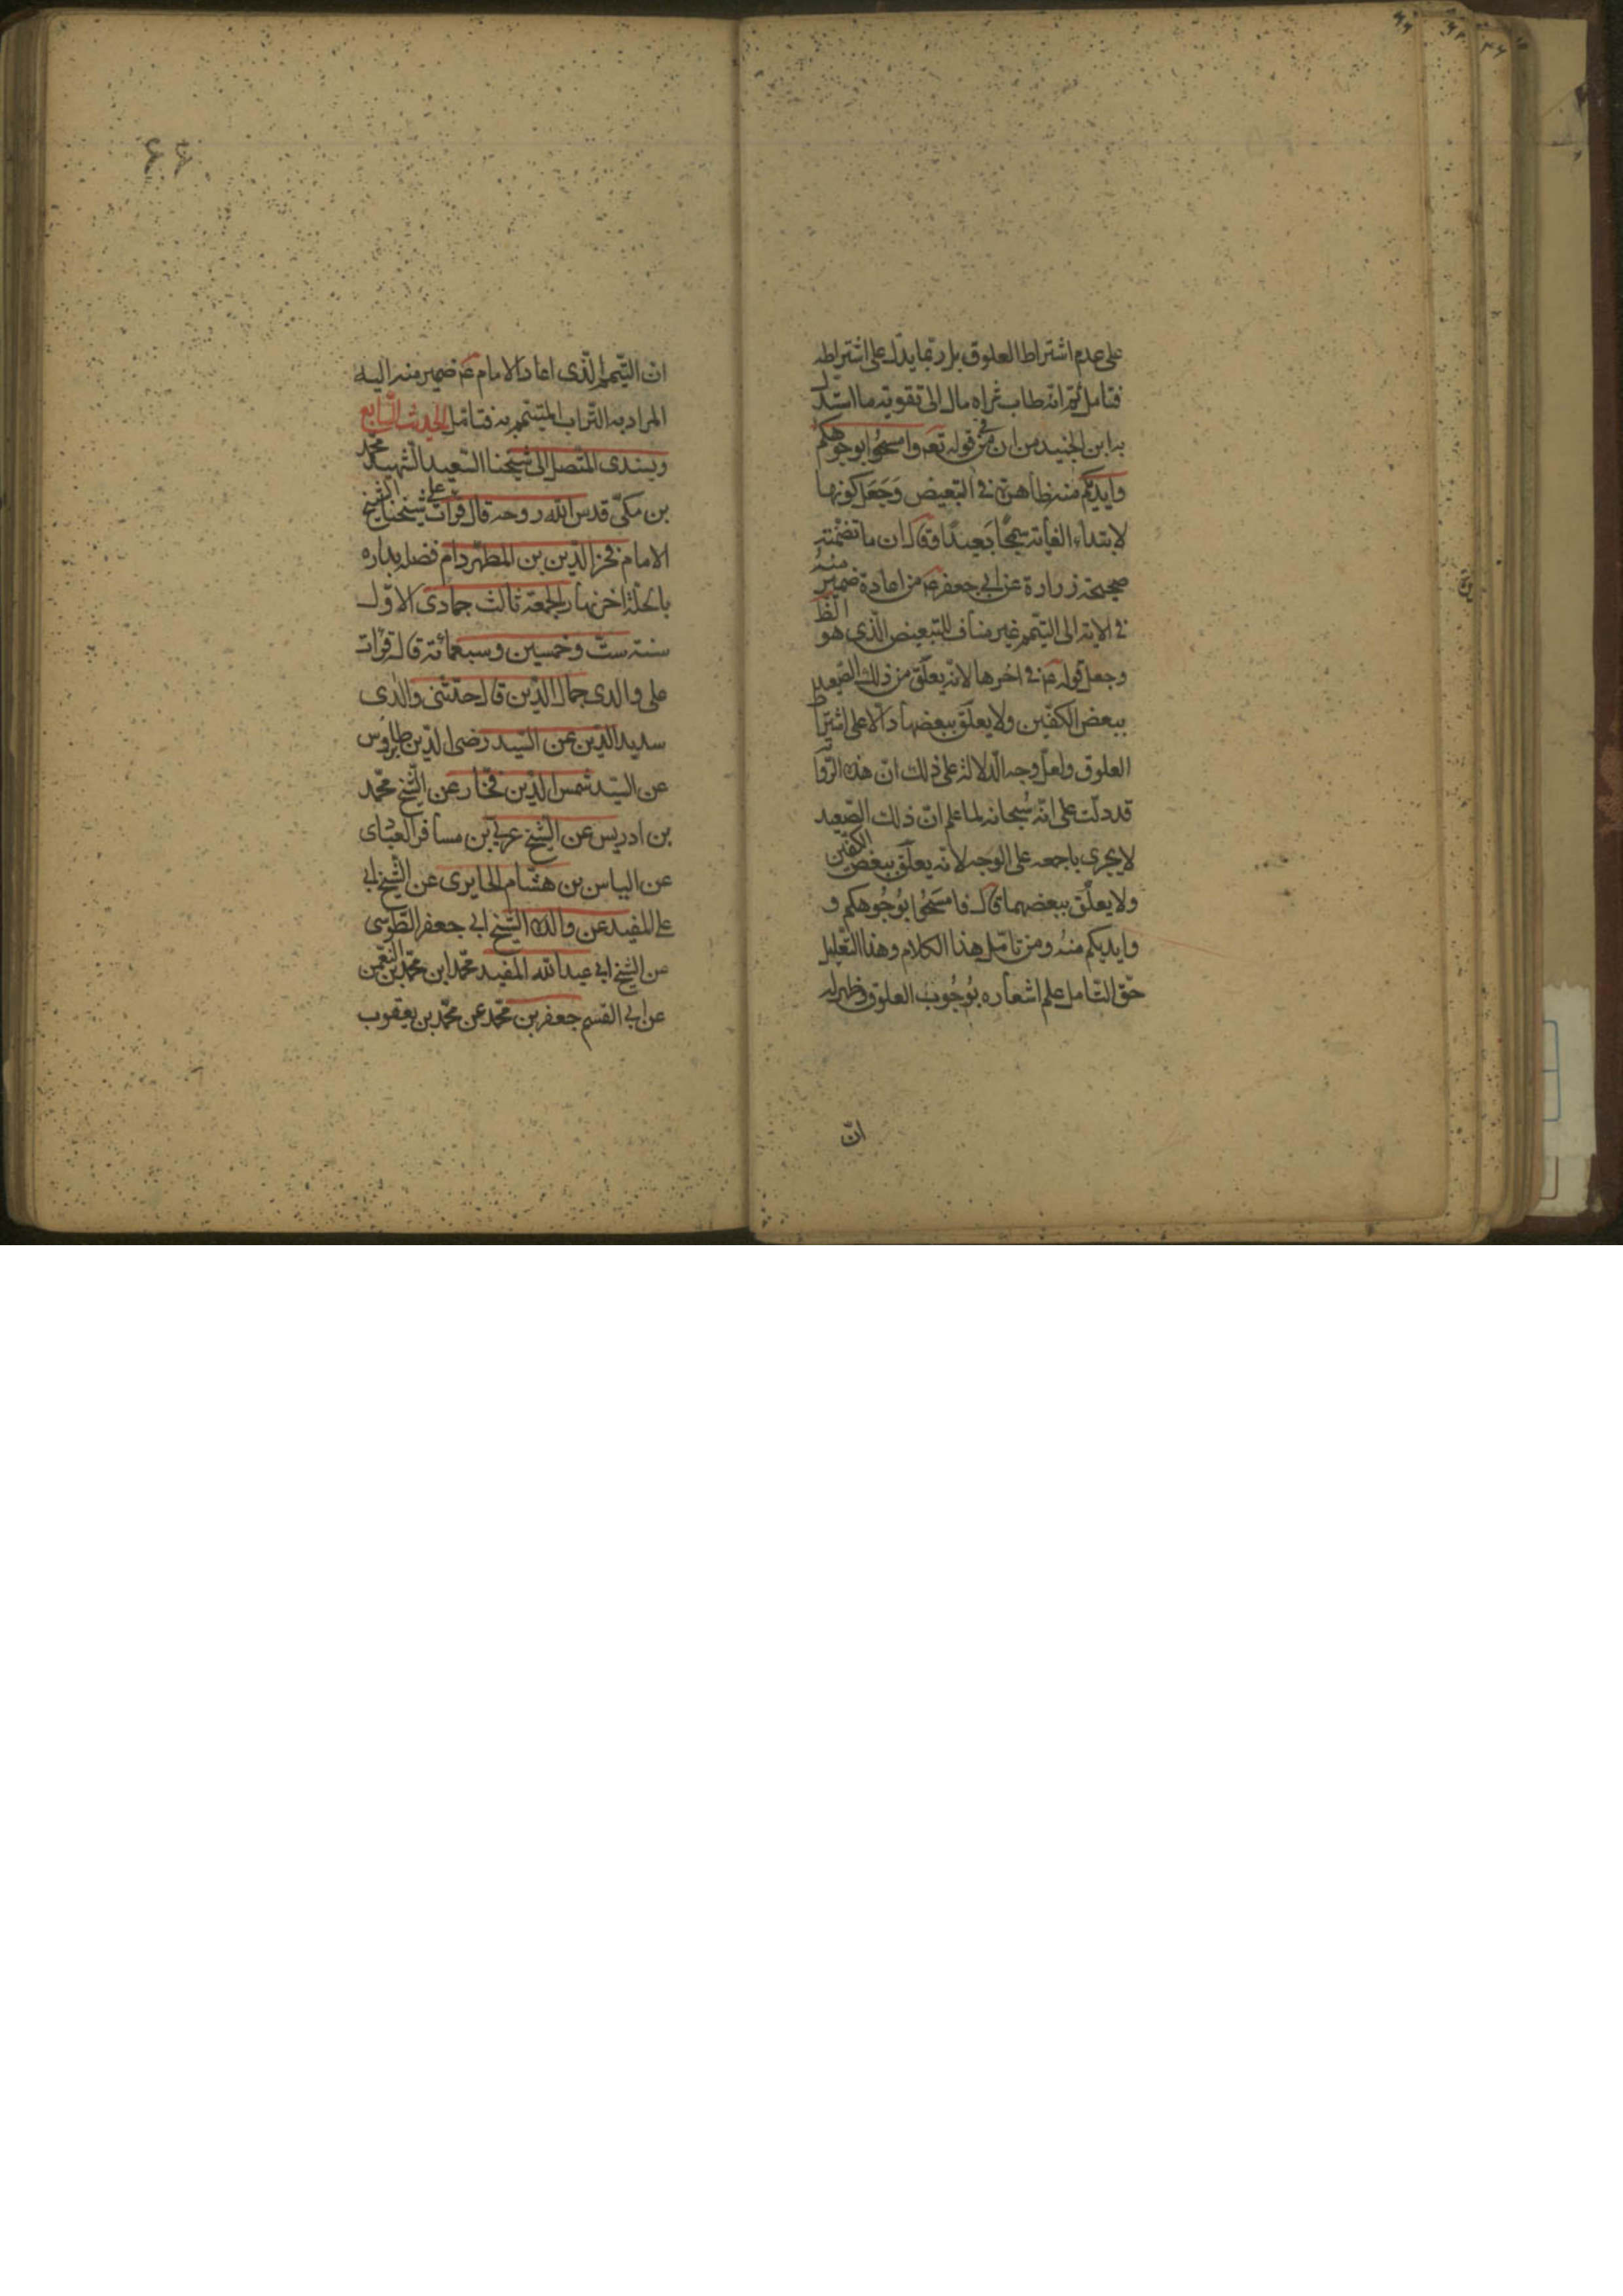 على عدم اشتراط العلوق بل ربّما يدلّ على اشتراطه
فتامل ثم انه طاب ثراه مال الى تقوية ما استدل
به ابن الجنيد من ان من فى قوله تعه وامسحوا بوجوهكم
وايديكم منه ظاهرة فى التبعيض وَجَعَل كونها
لابتداء الغاية سمجًا بَعيدًا وقال ان ما تضمنته
صحيحة زرارة عن ابى جعفر ع من اعادة ضمير منهُ
فى الاية الى التيمم غير مناف للتبعيض الّذى هو الظ
وجعل قوله ع فى اخرها لانه يعلّق من ذلك الصّعيد
ببعض الكفّين ولا يعلّق ببعضها دالّا على اشتراط
العلوق ولعلّ وجه الدّلالة على ذلك انّ هذه الرّوا
قد دلّت على انّه سُبحانه لما علم انّ ذلك الصّعيد
لا يجرى باجمعه على الوَجه لانه يعلّق ببعض الكفّين
ولا يعلّق ببعضهما قال فامسَحُوا بوُجُوهكم و
وايديكم منهُ ومن تامّل هذا الكلام وهذا التّعليل
حقّ التّامل علم اشعاره بوُجُوب العلوق وظهر له
انّ
۶۶
انّ التيمّم الّذى اعاد الامام ع ضمير منه اليه
المراد به التّراب المتيمّم به فتامّل الحديث السّابع
وبسندى المتّصل الى شيخنا السّعيد الشّهيد محمد
بن مكّى قدس الله روحه قال قرأت على شيخنا الشيخ
الامام فخر الدّين بن المطهّر دام فضله بداره
بالحلّة اخر نهار الجمعة ثالث جمادى الاوّل
سنة ستّ وخمسين وسبعمائة قال قرأت
على والدى جمال الدّين قال حدّثنى والدى
سديد الدّين عن السّيد رضى الدّين طاوُس
عن السّيد شمس الدّين فخّار عن الشّيخ محمّد
بن ادريس عن الشّيخ عربى بن مسافر العبّادى
عن الياس بن هشام الحايرى عن الشّيخ ابى
على المفيد عن والده الشّيخ ابى جعفر الطّوسى
عن الشّيخ ابى عبد الله المفيد محمّد ابن محمّد بن النّعمن
عن ابى القسم جعفر بن محمّد عن محمّد بن يعقوب